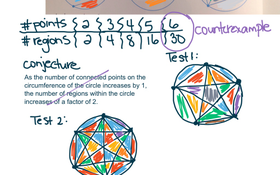 #points { 2 { 3 { 4 { 5 { 6
#regions { 2 { 4 { 8 { 16 { 30
counterexample
conjecture
Test 1:
As the number of connected points on the
circumference of the circle increases by 1,
the number of regions within the circle
increases of a factor of 2.
Test 2: